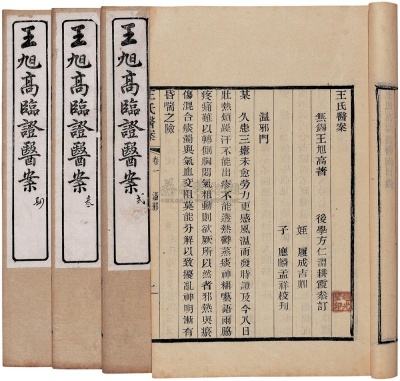 王氏醫案
無錫王旭高著
後學方仁淵耕霞參訂
姪 履成吉卿
子 應麟孟祥校刋
溫邪門
某 久患三瘧未愈勞力更感風溫時發時證及今八日
壯熱煩躁汗不能出疹不能透熱鬱蒸痰神糊囈語兩脇
疼痛難以轉側胸悶氣粗動則欲厥所以者邪熱與瘀
傷混合痰濁與氣血交阻莫能分解以致擾亂神明漸有
昏喘之險
王氏醫案
卷一
溫邪
一
王旭高臨證醫案 弍
王旭高臨證醫案 叁
王旭高臨證醫案